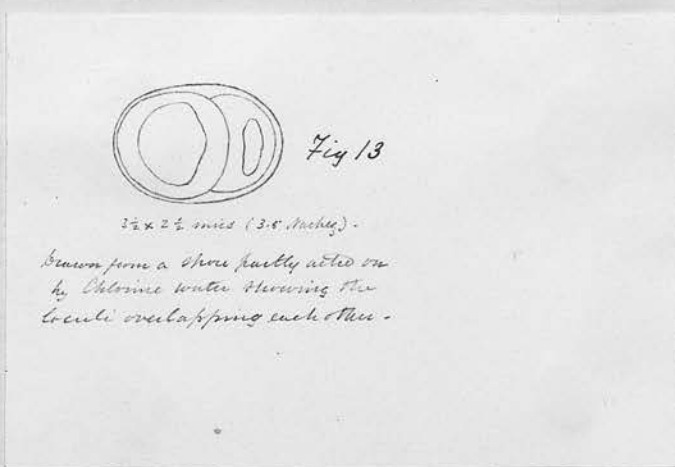 Fig 13
2½ x 2½ mics (3.5 Nachez).
Drawn from a spore partly acted on
by Chlorine water showing the
loculi overlapping each other.